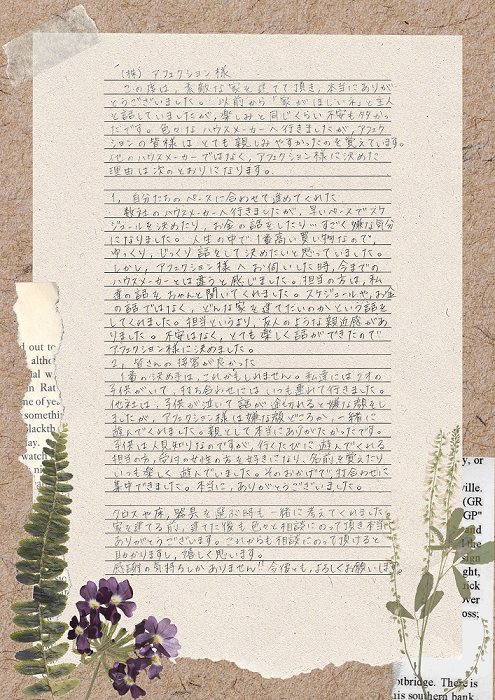 (株)アフェクション様
この度は、素敵な家を建てて頂き、本当にありが
とうございました。以前から「家がほしいネ」と主人
と話していましたが、楽しみと同じくらい不安も多かっ
たです。色々な ハウスメーカーへ行きましたが、アフェク
ションの皆様は とても親しみやすかったのを覚えています。
他のハウスメーカーではなく、アフェクション様に決めた
理由は次のとおりになります。
1. 自分たちのペースに合わせて進めてくれた
数社のハウスメーカーへ行きましたが、早いペースでスケ
ジュールを決めたり、お金の話をしたり…すごく嫌な気分
になりました。人生の中で1番高い買い物なので、
ゆっくり、じっくり話をして決めたいと思っていました。
しかし、アフェクション様へお伺いした時、今までの
ハウスメーカーとは違うと感じました。担当の方は、私
達の話をちゃんと聞いてくれました。スケジュールや、お金
の話ではなく、どんな家を建てたいのかという話を
してくれました。担当というより、友人のような親近感があ
りました。不安はなく、とても楽しく話ができたので
アフェクション様に決めました。
2. 皆さんの接客が良かった
1番の決め手は、これかもしれません。私達には2才の
子供がいて、打ち合わせには いつも連れて行きました。
他社は、子供が泣いて話が途切れると嫌な顔をし
ましたが、アフェクション様は嫌な顔どころか、一緒に
遊んでくれました。親として本当にありがたかったです。
子供は人見知りなのですが、行くたびに遊んでくれる
担当の方、受付の女性の方を好きになり、名前を覚えたり
いつも楽しく遊んでいました。そのおかげで打合わせに
集中できました。本当に、ありがとうございます。
クロスや床、器具を選ぶ時も一緒に考えてくれました。
家を建てる前、建てた後も色々と相談にのって頂き本当に
ありがとうございます。これからも相談にのって頂けると
助かりますし、嬉しく思います。
感謝の気持ちしかありません!!今後とも、よろしくお願いします。
d out to
altho
Rat
ne of yea
somethi
blackb
day.
watch
y, or
ville.
(GR
GP"
and
the
sign
ght,
tick
over
oss;
otbridge. There is
his southern bank